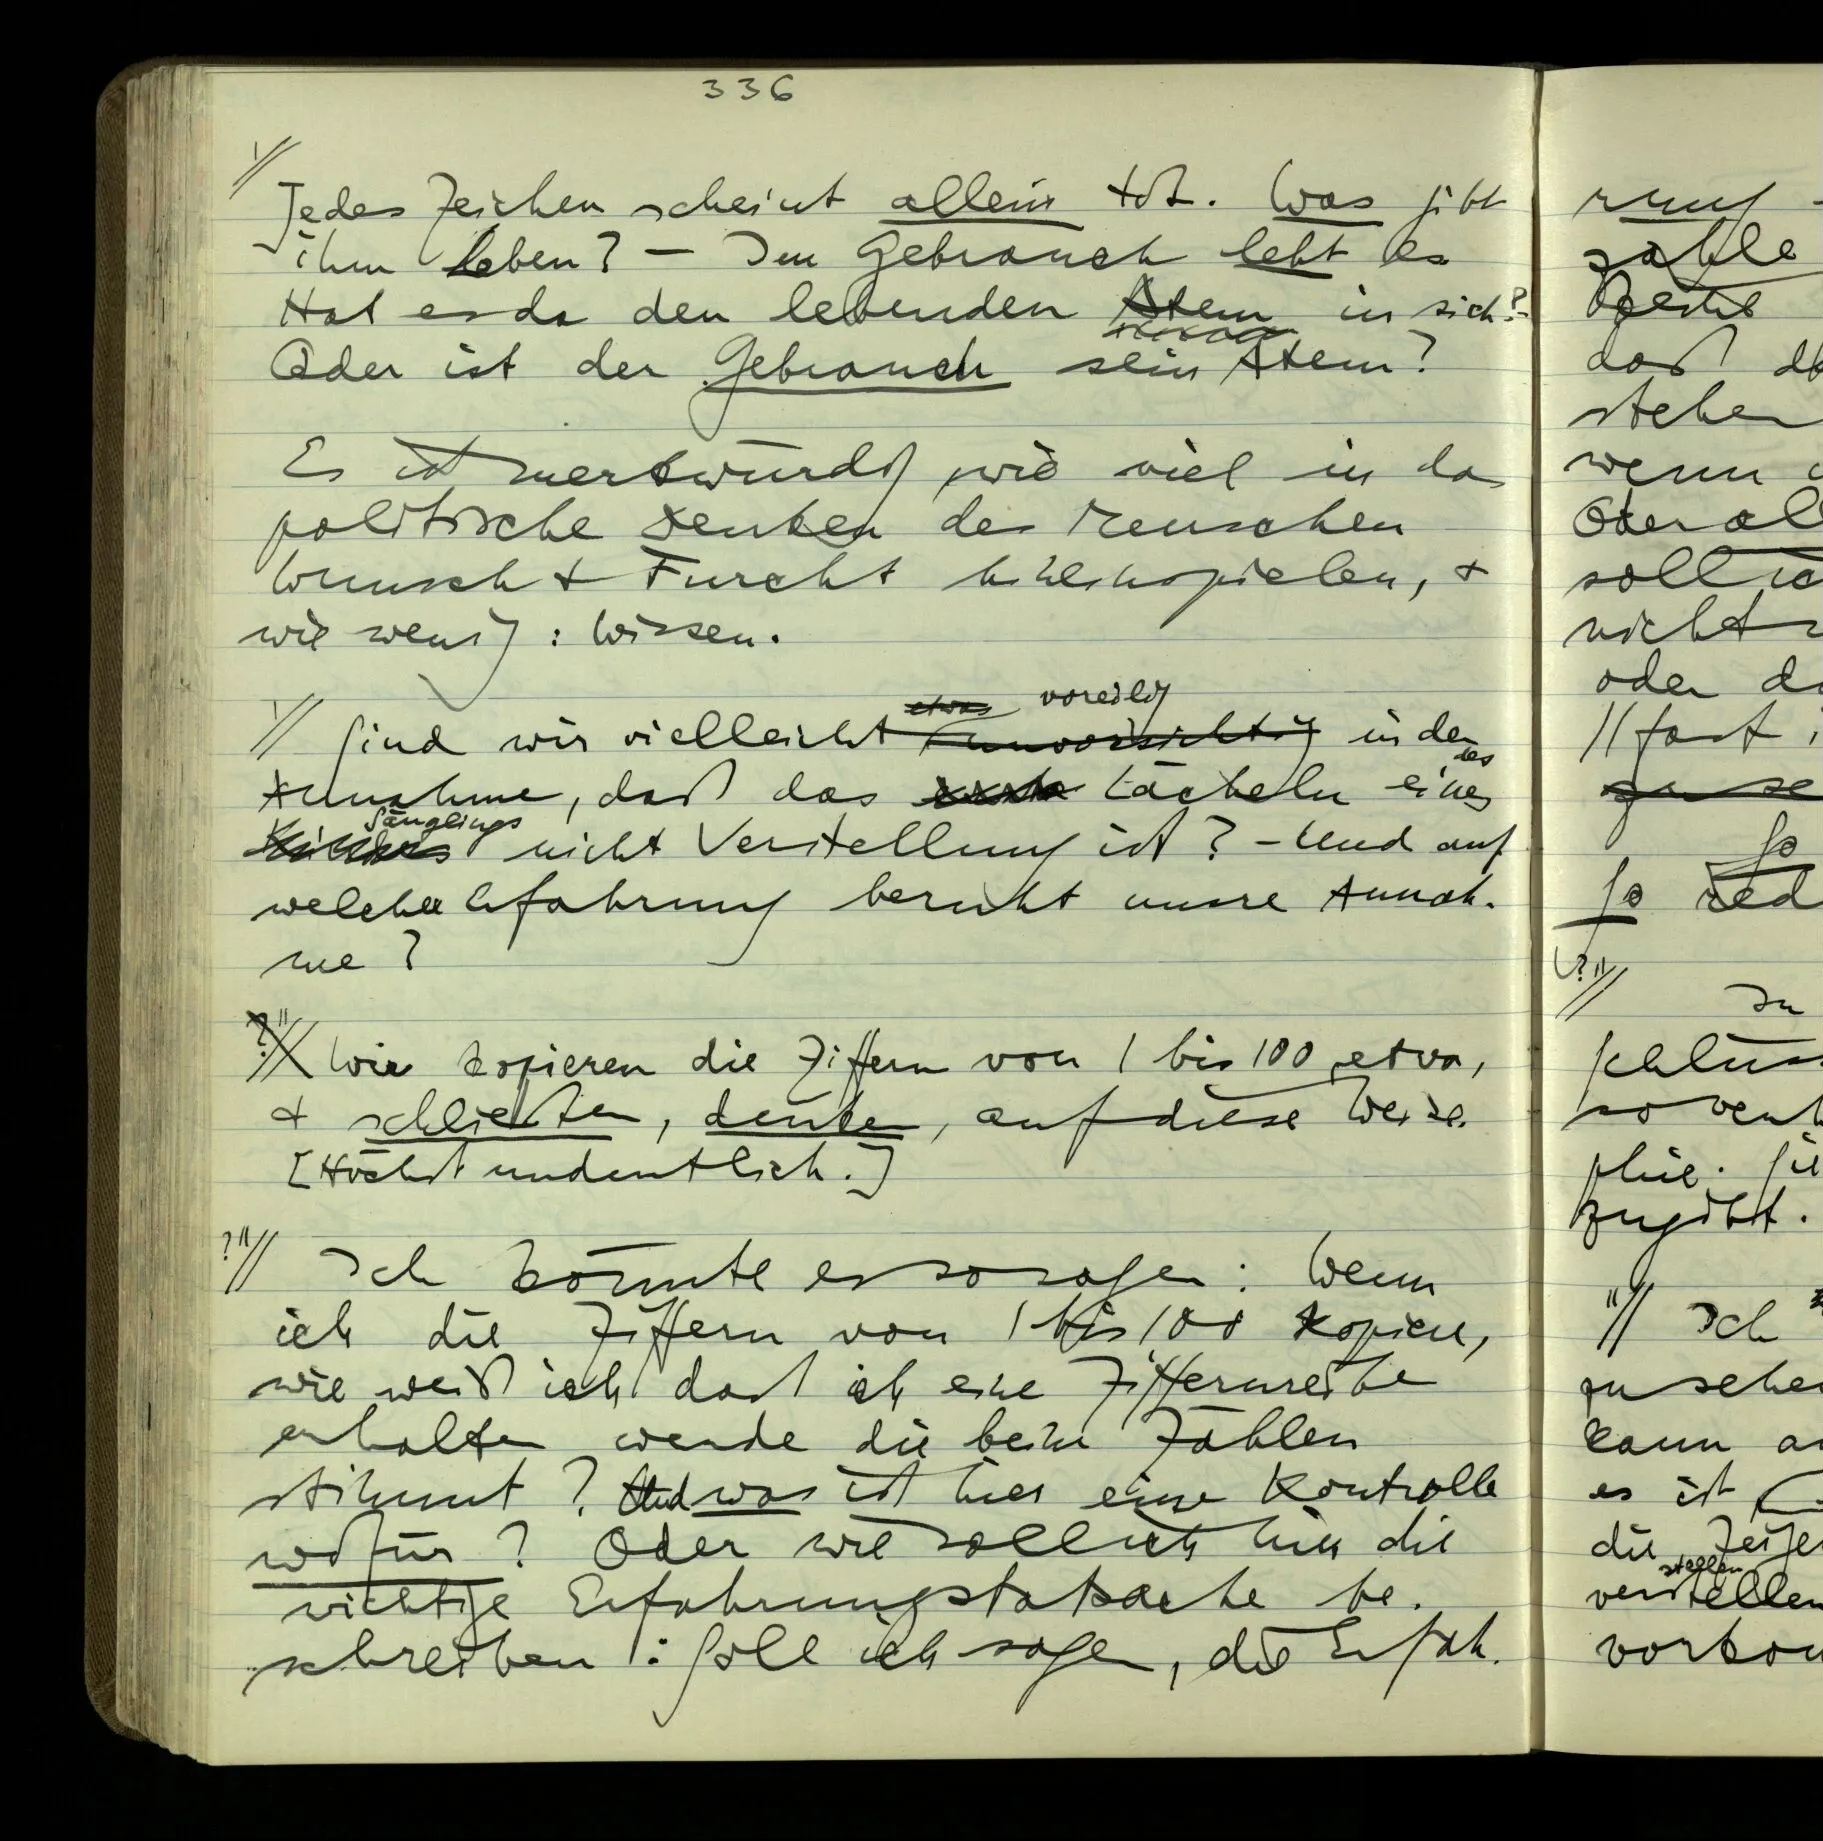 336
Jedes Zeichen scheint allein tot. Was gibt
ihm Leben? – Im Gebrauch lebt es
Hat es da den lebenden Atem in sich? –
Oder ist der Gebrauch sein Atem?
Es ist merkwürdig wie viel in das
politische Denken des Menschen
Wunsch & Furcht hineinspielen, &
wie wenig: Wissen.
etwas voreilig
Sind wir vielleicht unvorsichtig in der
des
Annahme, daß das Lächeln eines
Säuglings
Kindes nicht Verstellung ist? – Und auf
welcher Erfahrung beruht unsre Annah-
me?
?"// Wir kopieren die Ziffern von 1 bis 100 etwa,
& schließen, denken, auf diese Weise.
[Höchst undeutlich.]
?"// Ich könnte es so sagen: Wenn
ich die Ziffern von 1 bis 100 kopiere,
wie weiß ich daß ich eine Ziffernreihe
erhalten werde die beim Zählen
stimmt? Und was ist hier eine Kontrolle
wofür? Oder wie soll ich hier die
wichtige Erfahrungstatsache be-
schreiben: Soll ich sagen, die Erfah-
rung
zähle
daß
stehen
wenn
soll ich
nicht
oder
// fast
So
So red
?"//
zugibt.
"// Ich
zu sehe
kann
es ist
die Zeige
stellen
verstellen